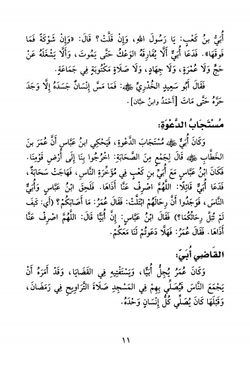 أُبَيُّ بنُ كَعْبٍ: يَا رَسُولَ اللهِ، وَإِنْ قَلَّتْ؟ قَالَ: «وَإِنْ شَوْكَةً فَمَا
فَوْقَهَا». فَدَعَا أُبَيٌّ أَلَّا يُفَارِقَهُ الوَعْكُ حَتَّى يَمُوتَ، وَأَلَّا يَشْغَلَهُ عَنْ
حَجٍّ وَلَا عُمْرَةٍ، وَلَا جِهَادٍ، وَلَا صَلَاةٍ مَكْتُوبَةٍ فِي جَمَاعَةٍ.
قَالَ أَبُو سَعِيدٍ الخُدْرِيُّ: فَمَا مَسَّ إِنْسَانٌ جَسَدَهُ إِلَّا وَجَدَ
حَرَّهُ حَتَّى مَاتَ [أحمدُ وابنُ حبَّان].
مُسْتَجَابُ الدَّعْوَةِ:
وَكَانَ أُبَيٌّ مُسْتَجَابَ الدَّعْوَةِ، فَيَحْكِي ابنُ عَبَّاسٍ أَنَّ عُمَرَ بنَ
الخَطَّابِ قَالَ لِجَمْعٍ مِنَ الصَّحَابَةِ: اخْرُجُوا بِنَا إِلَى أَرْضِ قَوْمِنَا.
فَكَانَ ابنُ عَبَّاسٍ مَعَ أُبَيِّ بنِ كَعْبٍ فِي مُؤَخَّرَةِ النَّاسِ، فَهَاجَتْ سَحَابَةٌ،
فَدَعَا أُبَيٌّ قَائِلًا: اللَّهُمَّ اصْرِفْ عَنَّا أَذَاهَا. فَلَحِقَ ابنُ عَبَّاسٍ وَأُبَيٌّ
النَّاسَ، فَوَجَدُوا أَنَّ رِحَالَهُمُ ابْتَلَّتْ: فَقَالَ عُمَرُ: مَا أَصَابَكُمْ؟ (أي: كَيْفَ
لَمْ تُبَلَّ رِحَالُكُمَا؟) فَقَالَ ابنُ عَبَّاسٍ: إِنَّ أُبَيًّا قَالَ: اللَّهُمَّ اصْرِفْ عَنَّا
أَذَاهَا. فَقَالَ عُمَرُ: فَهَلَّا دَعَوْتُمْ لَنَا مَعَكُمْ.
القَاضِي أُبَيٌّ:
وَكَانَ عُمَرُ يُجِلُّ أُبَيًّا، وَيَسْتَفْتِيهِ فِي القَضَايَا، وَقَدْ أَمَرَهُ أَنْ
يَجْمَعَ النَّاسَ فَيُصَلِّيَ بِهِمْ فِي المَسْجِدِ صَلَاةَ التَّرَاوِيحِ فِي رَمَضَانَ،
وَقَبْلَهَا كَانَ يُصَلِّي كُلُّ إِنْسَانٍ وَحْدَهُ.
١١